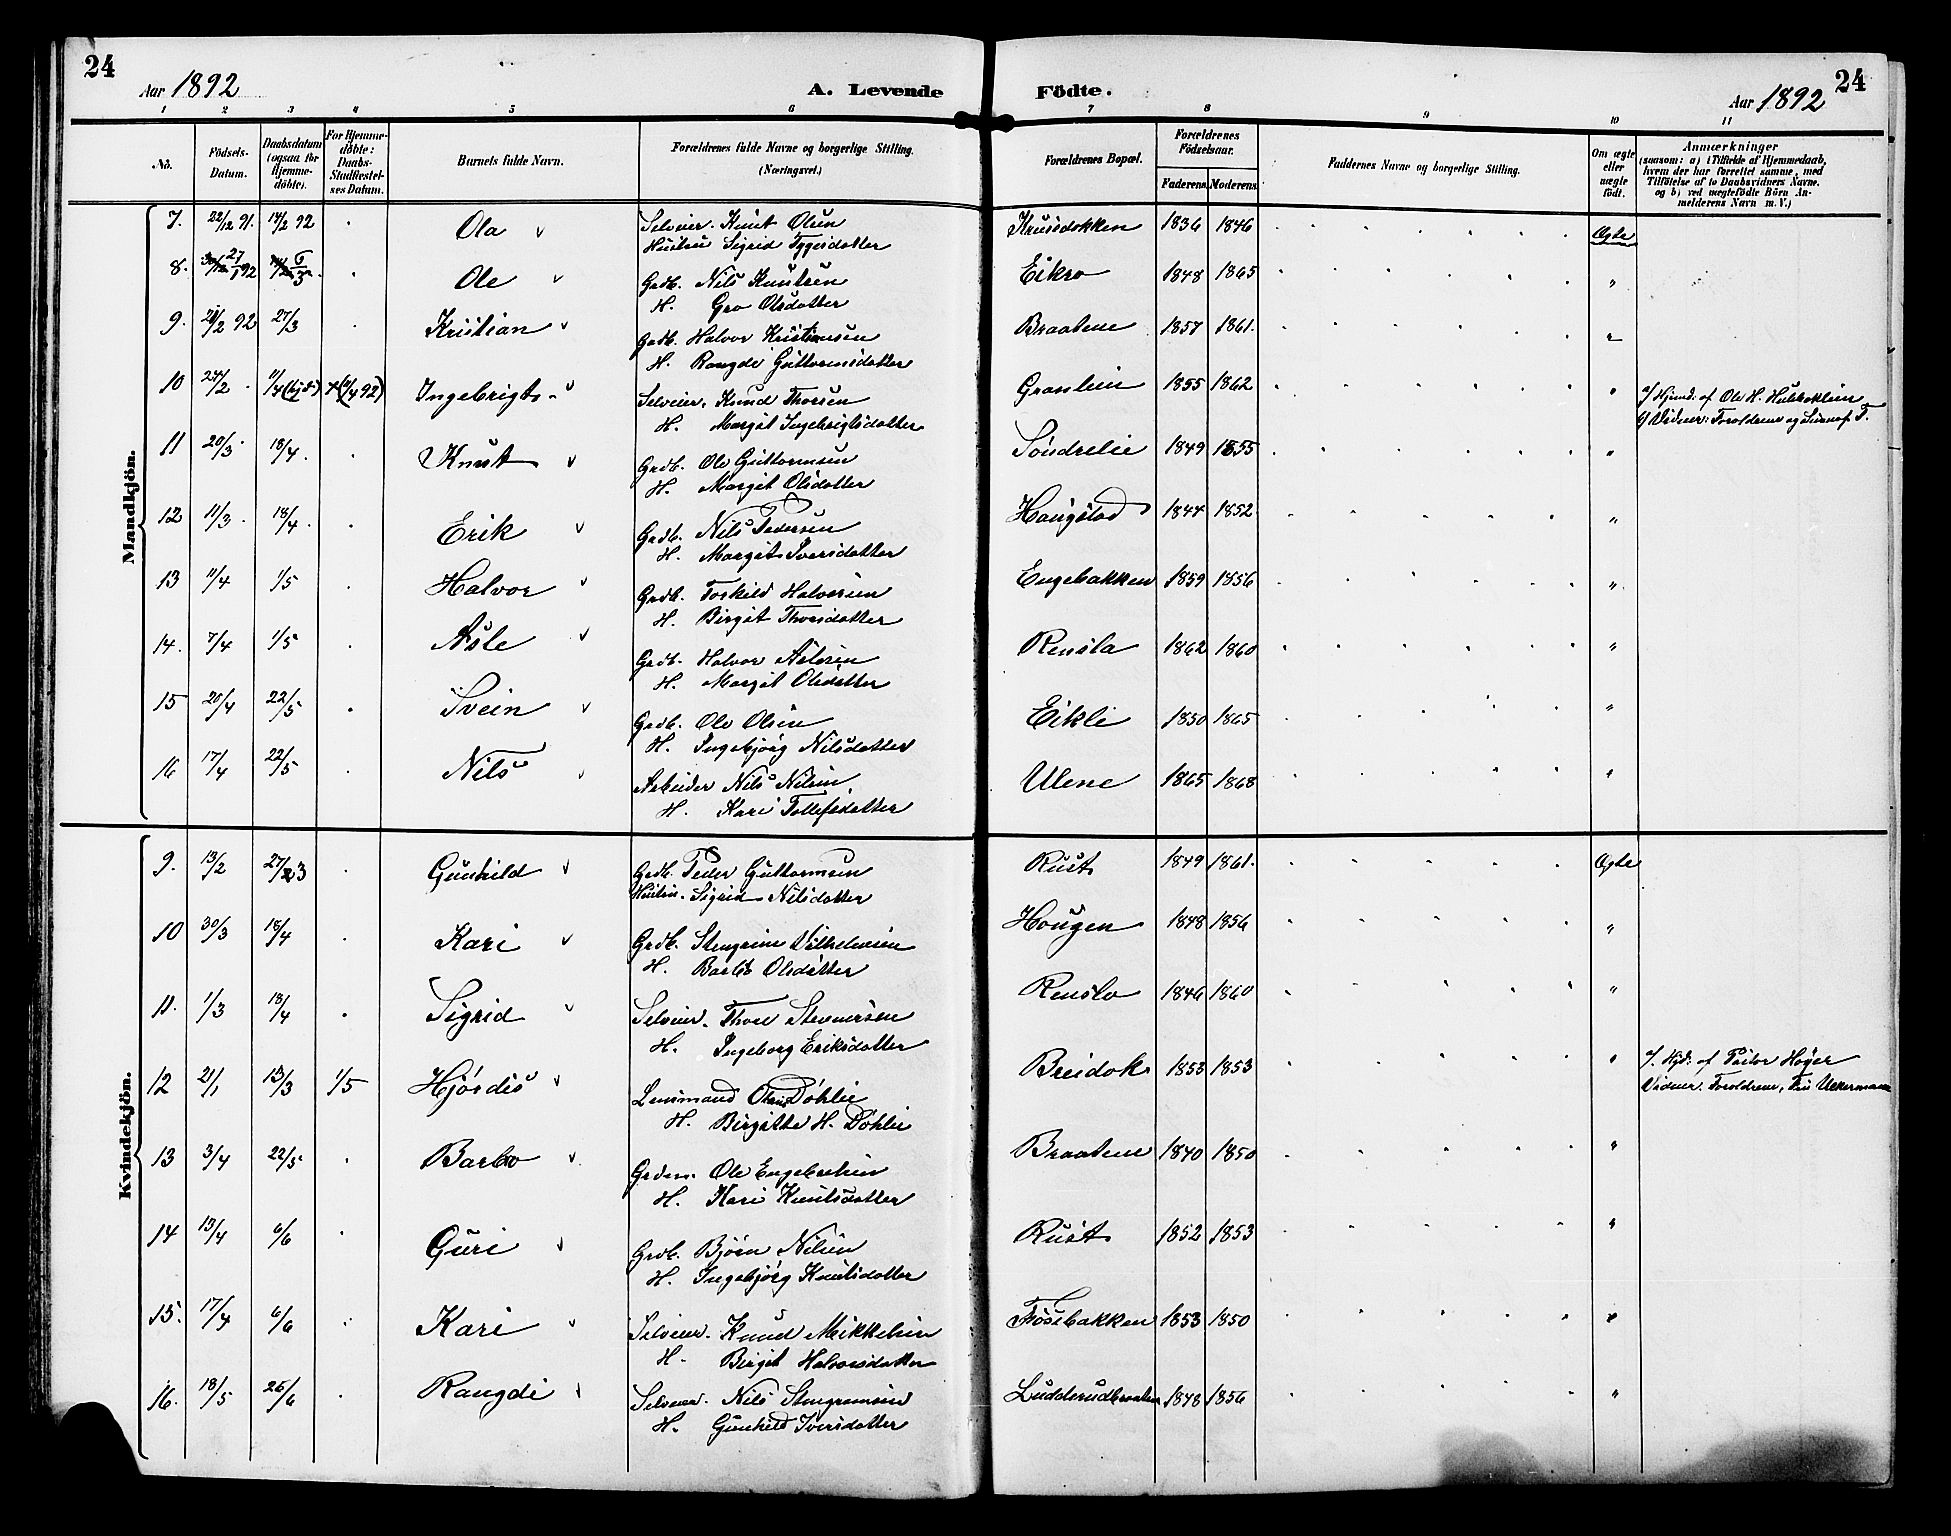 24
Aar 1892
A. Levende
Födte.
Aar 1892
24
1 2 3 4 5 6 7 8 9 10 11
No.
Födsels-Datum.
Daabsdatum (ogsaa for Hjemme-döbte).
For Hjemme-döbte: Daabs-Stadfæstel-ses Datum.
Barnets fulde Navn.
Forældrenes fulde Navne og borgerlige Stilling. (Næringsvei.)
Forældrenes Bopæl.
Forældrenes Födselsaar.
Faderens. Moderens.
Faddernes Navne og borgerlige Stilling.
Om ægte eller uægte födt.
Anmærkninger
(saasom: a) i Tilfælde af Hjemmedaab, hvem der har forrettet samme, med Tilföielse af to Daabsvidners Navne, og b) ved uægtefödte Börn An-melderens Navn m. V.)
Mandkjön.
7. 22/12 91. 14/2 92 Ola Selveier. Knut Olsen Krussdokken 1836 1846 Ægte
Hustru Sigrid Tyggesdotter
8. 27/1 92 6/3 Ole Grdb. Nils Knutsen Eikro 1848 1865 "
H. Gro Olsdotter
9. 21/2 92 27/3 Kristian Grdb. Halvor Kristiansen Braatene 1857 1861. "
H. Rangdi Guttormsdotter
10 24/2 11/4 (hjd) Ingebrigt Selveier. Knud Thorsen Granlien 1855 1862 "
H. Margit Ingebrigtsdotter
a/ Hjemd. af Ole H.
b/ Vidner: Forældrene og
11 20/3 18/4 Knut Grdb. Ole Guttormsen Søndrelie 1849 1855 "
H. Margit Olsdotter
12 11/3 18/4 Erik Grdb. Nils Pedersen Haugstad 1844 1852 "
H. Margit Iversdotter
13 11/4 1/5 Halvor Grdb. Torkild Halvorsen Engebakken 1859 1856 "
H. Birgit Thorsdotter
14. 7/4 1/5 Asle Grdb. Halvor Aslesen Rensla 1862 1860 "
H. Margit Olsdotter
15 20/4 22/5 Svein Grdb. Ole Olsen Eikli 1850 1865 "
H. Ingebjørg Nilsdotter
16 17/4 22/5 Nils Arbeider Nils Nilsen Ulene 1865 1868 "
H. Kari Tollefsdotter
Kvindekjön.
9. 13/2 27/3 Gunhild Grdb. Peder Guttormsen Rust 1849 1861. Ægte
Hustru. Sigrid Nilsdotter
10 30/3 18/4 Kari Grdb. Stengrim Vilhelmsen Hougen 1848 1856 "
H. Barbo Olsdotter
11. 1/3 18/4 Sigrid Selveier. Thore Stevnersen Renslo 1846 1860 "
H. Ingeborg Eriksdotter
12 21/1 13/3 1/5 Hjørdis Lensmand Døhlie Breidok 1853 1853 "
H. Birgitte H. Døhlie
a/ Hjd: af Pastor Høyer
Vidner. Forældrene, Fru Uckermann
13 3/4 22/5 Barbo Ole Engebretsen Braatene 1840 1850 "
H. Kari Knutsdotter
14 13/4 6/6 Guri Grdb. Bjørn Nilsen Rust 1852 1853 "
H. Ingebjørg Knutsdotter
15. 17/4 6/6 Kari Selveier. Knud Mikkelsen Føsebakken 1853 1850 "
H. Birgit Halvorsdotter
16. 18/5 26/6 Rangdi Selveier. Nils Stengrimsen Ludderudbraaten 1848 1856 "
H. Gunhild Iversdotter